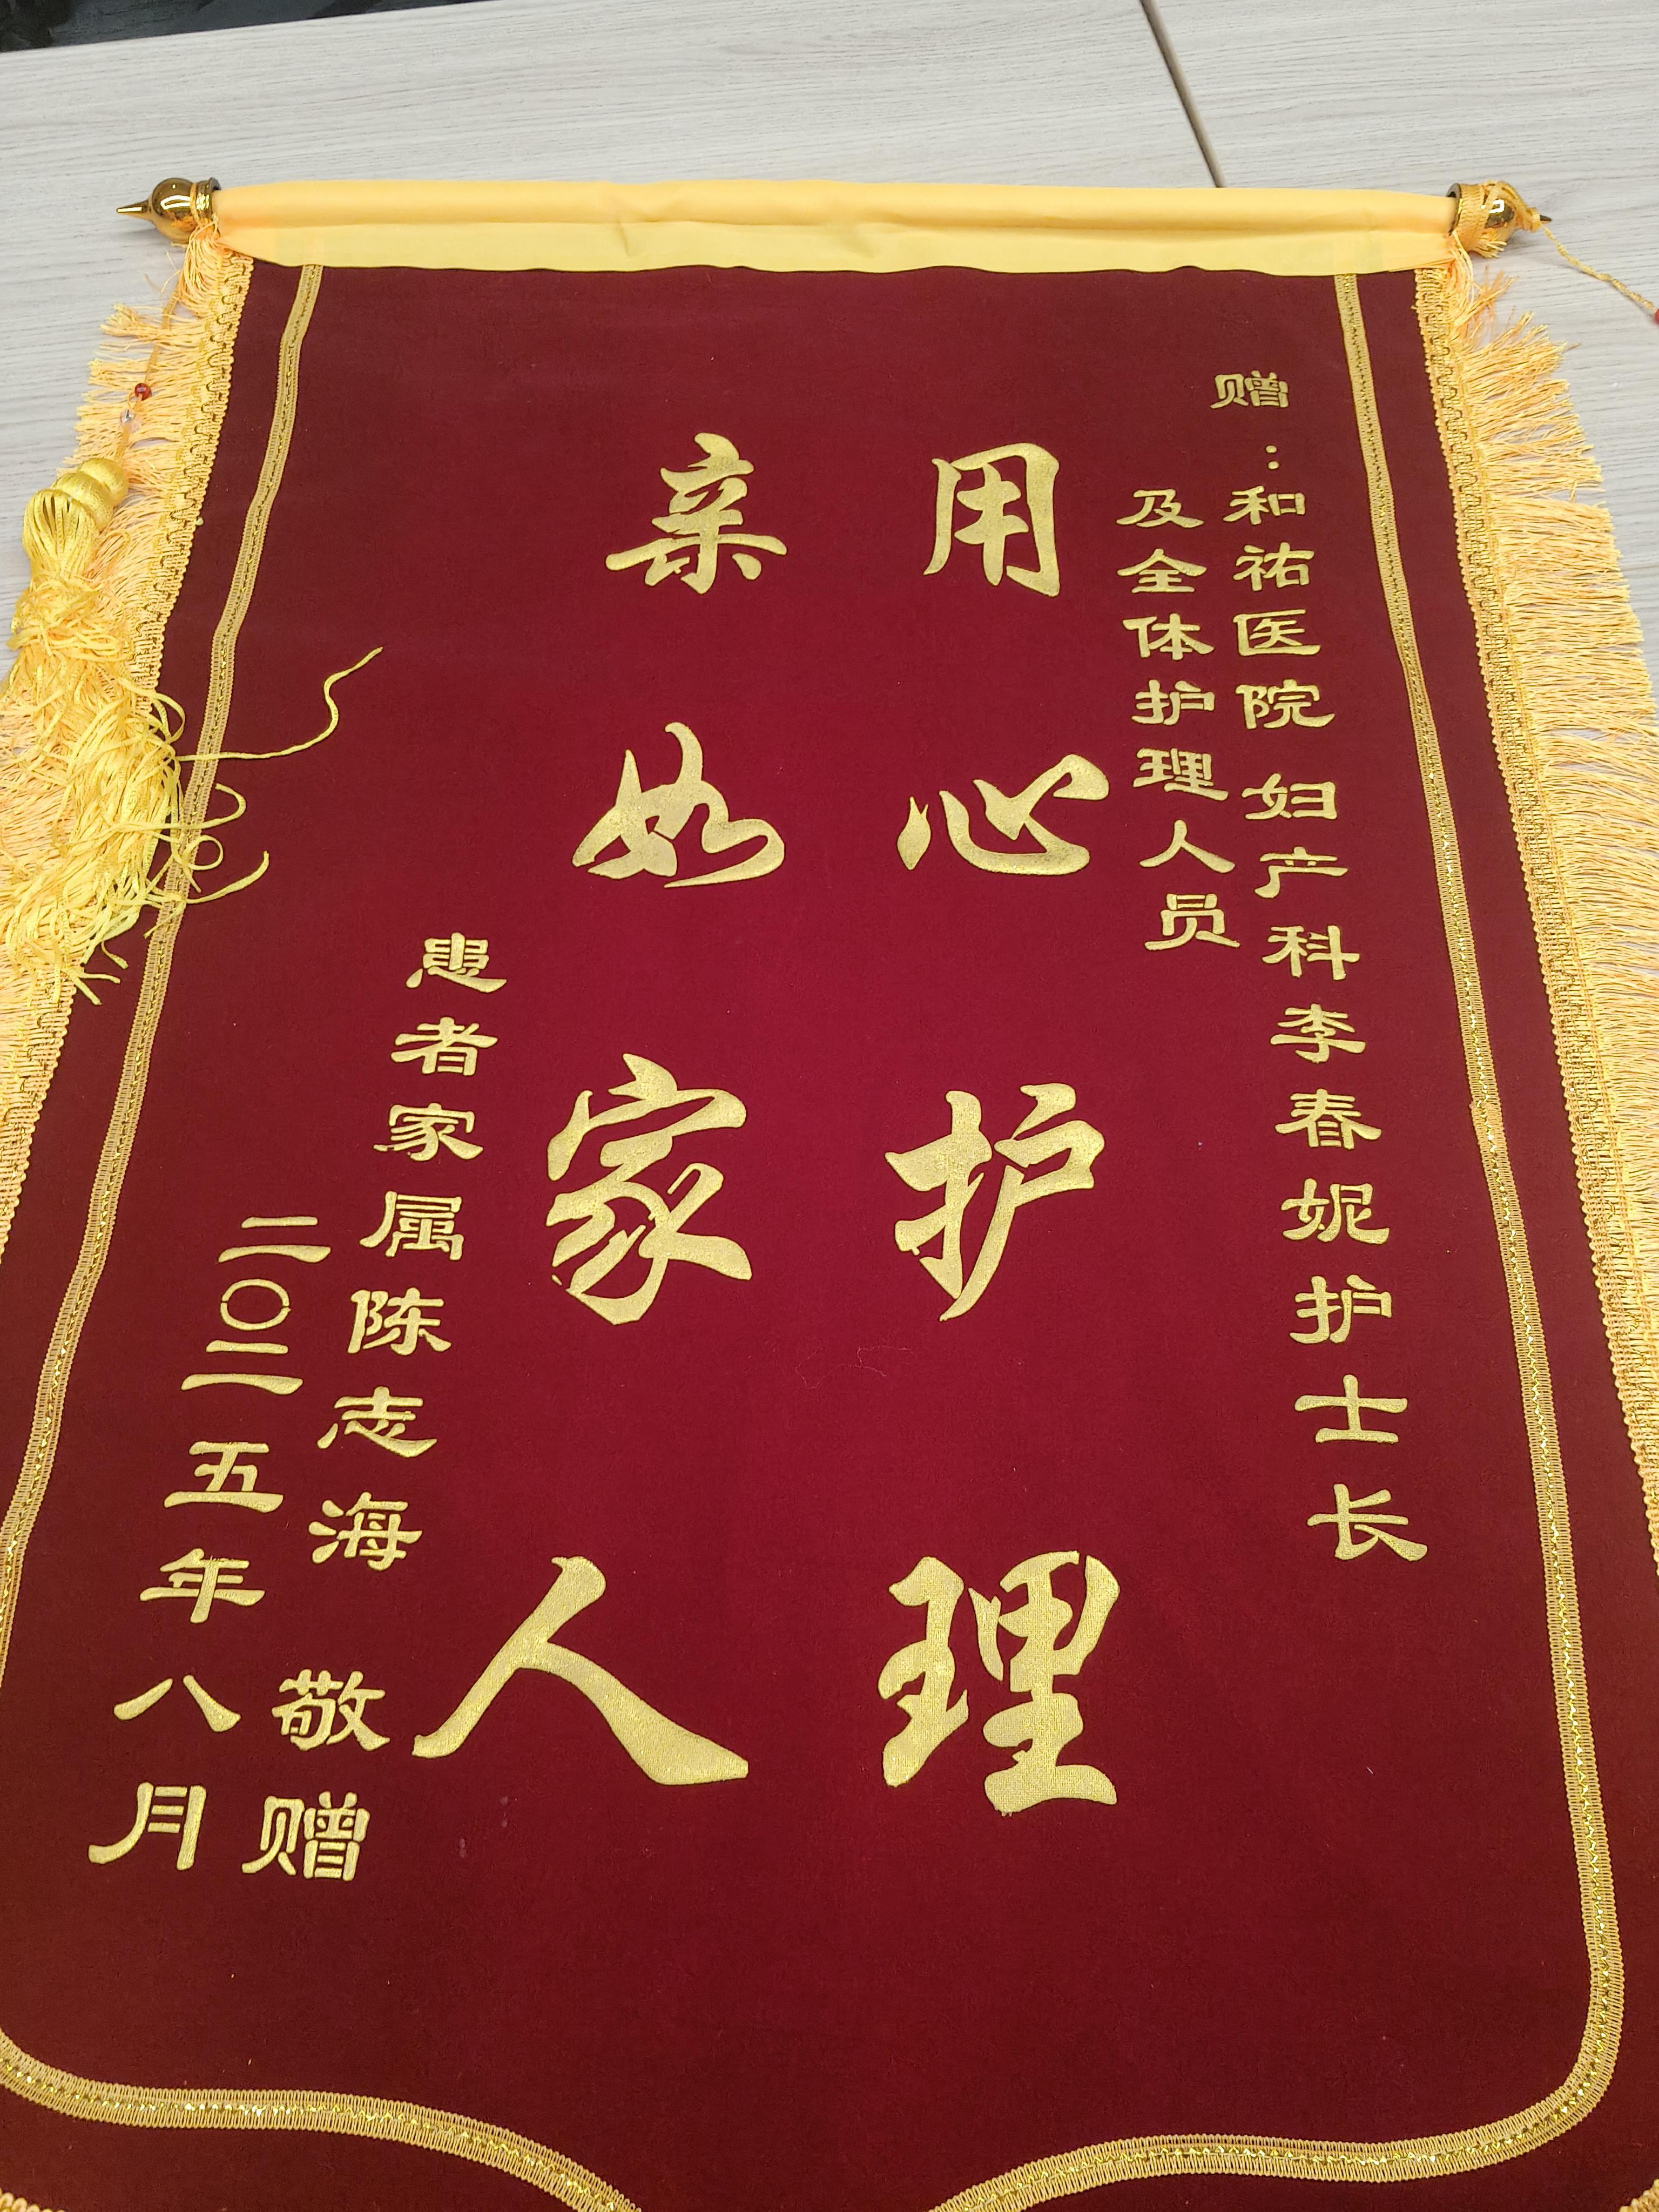 赠：和祐医院 妇产科李春妮护士长
及全体护理人员
用心护理
亲如家人
患者家属陈志海 敬赠
二〇二五年八月